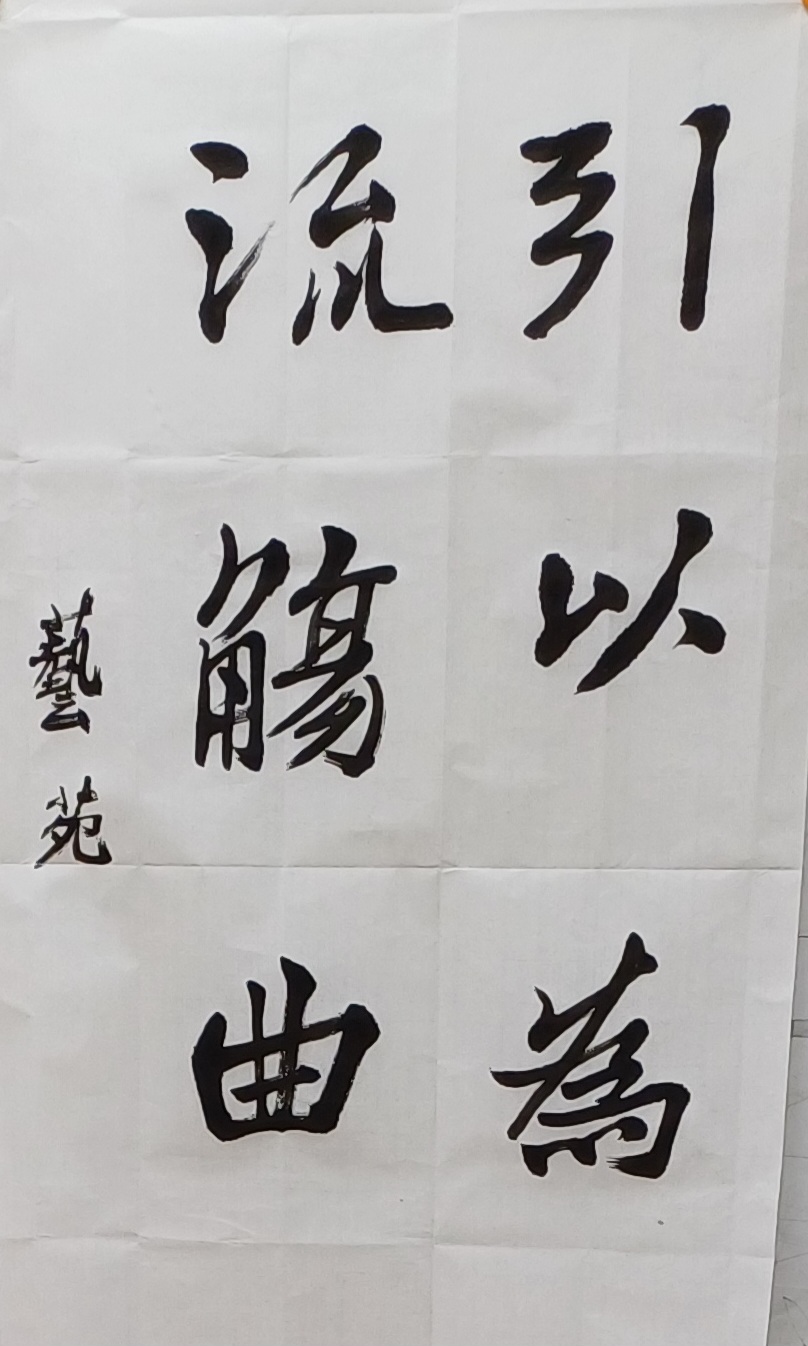 引以為
流觴曲
藝苑